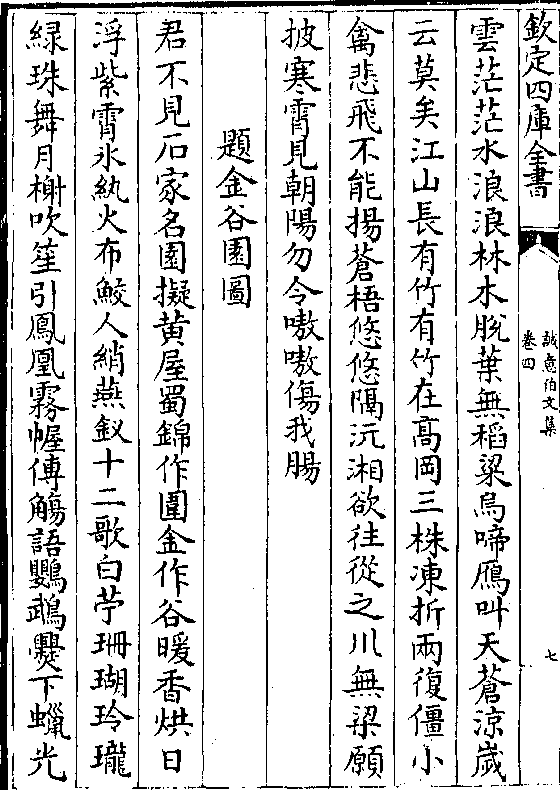 欽定四庫全書
誠意伯文集
卷四
七
雲茫茫水浪浪林木脫葉無稻粱烏啼鴈叫天蒼涼歲
云莫矣江山長有竹有竹在髙岡三株凍折兩復僵小
禽悲飛不能揚蒼梧悠悠隔沅湘欲往從之川無梁願
披寒霄見朝陽勿令嗷嗷傷我腸
題金谷園圖
君不見石家名園擬黄屋蜀錦作圍金作谷暖香烘日
浮紫霄氷紈火布鮫人綃燕釵十二歌白苧珊瑚玲瓏
緑珠舞月榭吹笙引鳳凰霧幄傳觴語鸚鵡爨下蠟光